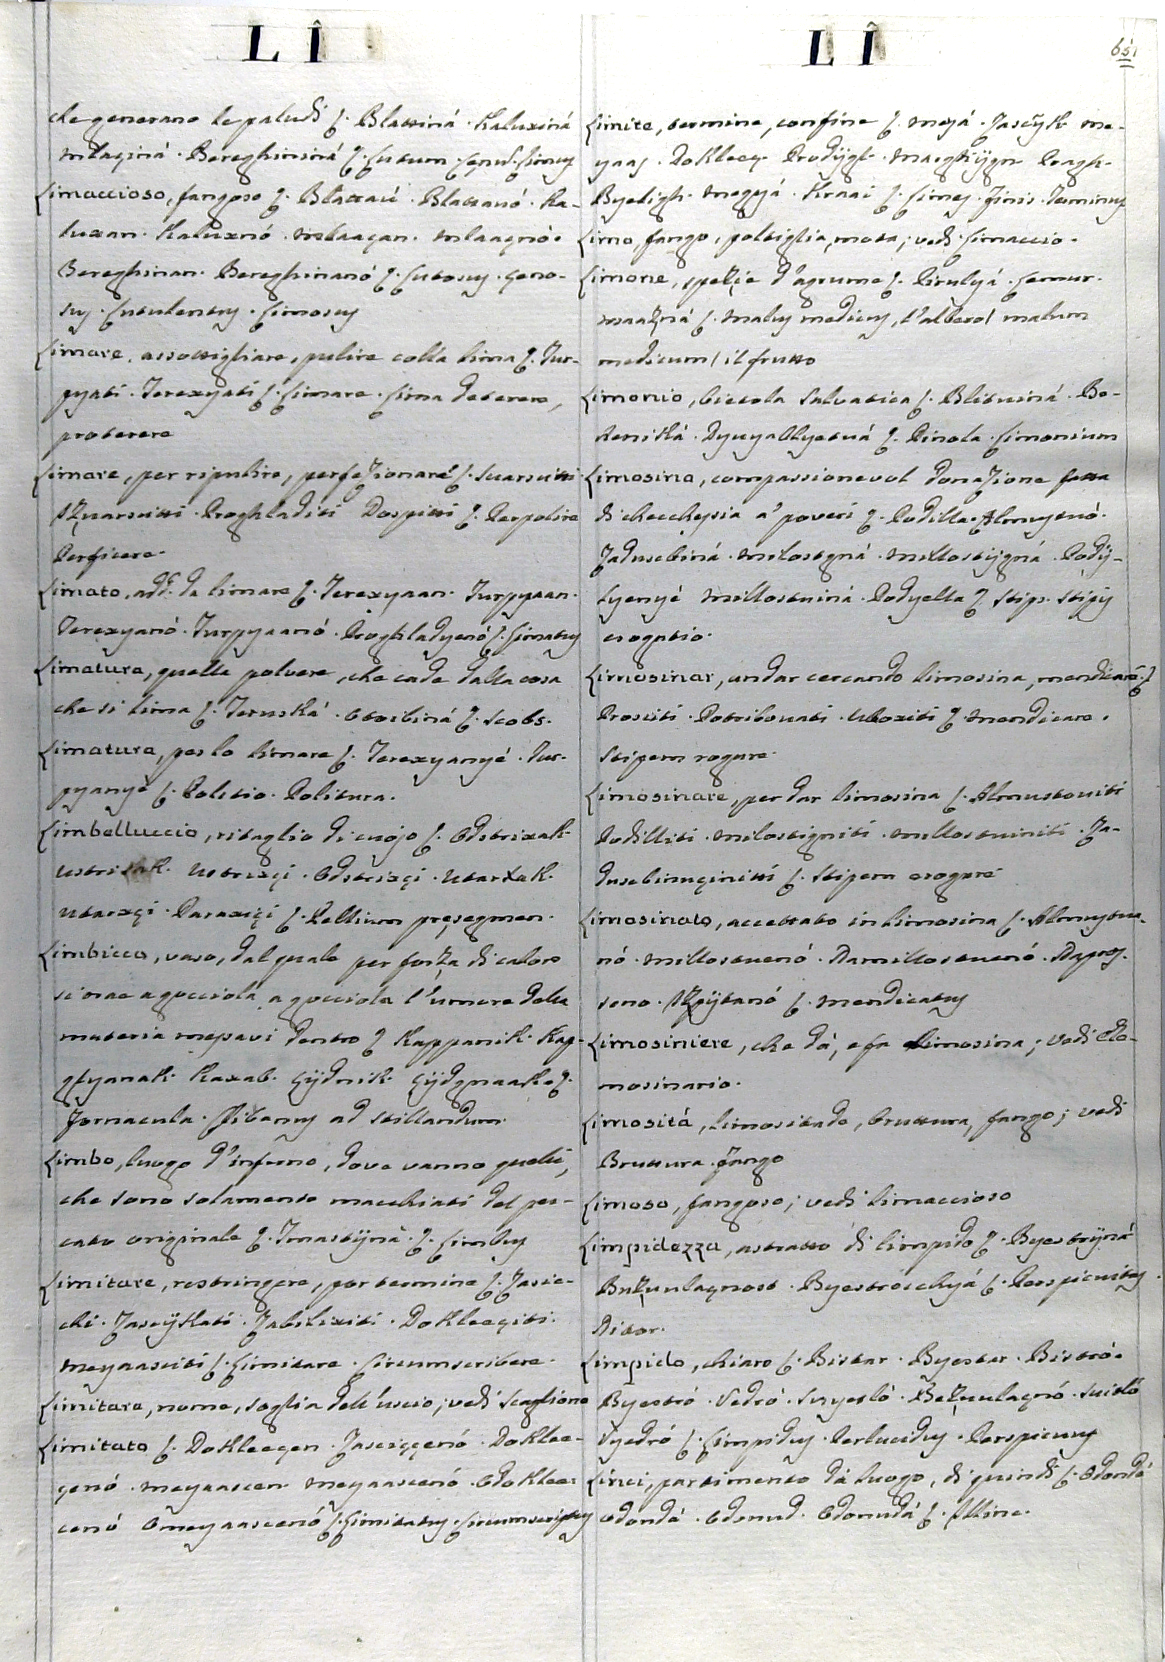 L Î
che generano le paludi ς. Blattiná. Kaluxiná
mlaçiná. Bereghininá ς. Lutum. Cęnū. Limus
Limaccioso, fangoso ς. Blattav́. Blattanó. Ka-
luxan. Kaluxnó. mlaaçan. mlaaçnó.
Bereghinan. Bereghinanó ς. Lutosus. Cęno-
sus. Lutulentus. Limosus
Limare, assottigliare, pulire colla lima ς. Tur-
pyati. Terexyati ς. Limare. Lima deterere,
proterere
Limare, per ripulire, perfeʒionare ς. Svarsitti.
Proghladiti Dospitti ς. Perpolire
Perficere.
Limato, add. da limare ς. Terexyaan. Turpyaan.
Terexyanó. Turpyaanó. Proghladyenó ς. Limatus
Limatura, quella polvere, che cade dalla cosa
che si lima ς. Teruská. Otorbiná ς. Scobs.
Limatura, per lo limare ς. Terexyanyé. Tur-
pyanyé ς. Politio. Politura.
Limbelluccio, ritaglio di cuojo ς. Odstrixak.
Ustrixak. Ustrixçi. Odstrixçi. Utarxak.
Utarxçi. Paraxiçi ς. Pellium pręsegmen.
Limbicco, vaso, dal quale per forʒa di calore
si trae a gocciola, a gocciola l'umore della
materia messavi dentro ς Kappanik. Kap-
glyanak. Kaxab. Çijdnik. ς.
Fornacula. ad stillandum.
Limbo, luogo d'inferno, dove vanno quelli,
che sono solamente macchiati del pec-
cato originale ς. Tmastijná ς. Limbus
Limitare, restringere, por termine ς. Zasie-
chi. Zascÿkati. Zabilixiti. Dokleeçiti.
meyaasciti ς. Limitare. Circumscribere.
Limitare, nome, soglia dell'uscio; vedi Scaglione
Limitato ς. Dokleeçen. Zasciççenó. Doklee-
çenó. meyaascen. meyaascenó. Odoklee-
cenó Omeyaascenó ς. Limitatus. Circumscriptus
L Î
651
Limite, termine, confine ς. meyá. Zascÿk. me-
yaas. Dokleeç. Prodÿgl. Pragh.
Byeligh. meggyá. Kraai ς. Limes. Finis. Terminus
Limo, fango, poltiglia, mota; vedi Limaccio.
Limone, speʒie d'agrume ς. Lirulyá. Lemur.
ς. Malus medicus, l'albero/ malum
medicum/ il frutto
Limonio, bietola salvatica ς. Blituiná. Bo-
keniská. ς. Pirola. Limonium
Limosina, compassionevol donaʒione fatta
di checchessia a' poveri ς. Podilla. Almuxnó.
Zadusebiná. milostgná. millostÿgná. Podÿ-
lyenyé millostiná. Podyella ς. Stips. Stipis
erogatio.
Limosinar, andar cercando limosina, mendicare ς
Prositi. Potribovati. Uboxiti ς. mendicare.
Stipem rogare.
Limosinare, per dar limosina ς. Almustoviti
Podilliti. milostigniti. millostiniti. Za-
dusebinuçinitti ς. Stipem erogare
Limosinato, accettato in limosina ς. Almuxtva-
nó. millostvenó. Namillostvenó. Napros-
seno. ς. mendicatus
Limosiniere, che dà, e fa limosina; vedi Ele-
mosinario.
Limosità, limositade, bruttura, fango; vedi
Bruttura. Fango
Limoso, fangoso; vedi Limaccioso
Limpidezza, astratto di limpido ς. Byestrÿná
Byestroschyá ς. Perspicuitas.
Nitor.
Limpido, chiaro ς. Bistar. Byestar. Bistró.
Byestró. Vedró. Svyetló. Svitló
Vyedró ς. Limpidus. Perlucidus. Perspicuus
Linci, partimento da luogo, di quindi ς. Odondá
Odondá. Odonud. Odonudá ς. Illinc.